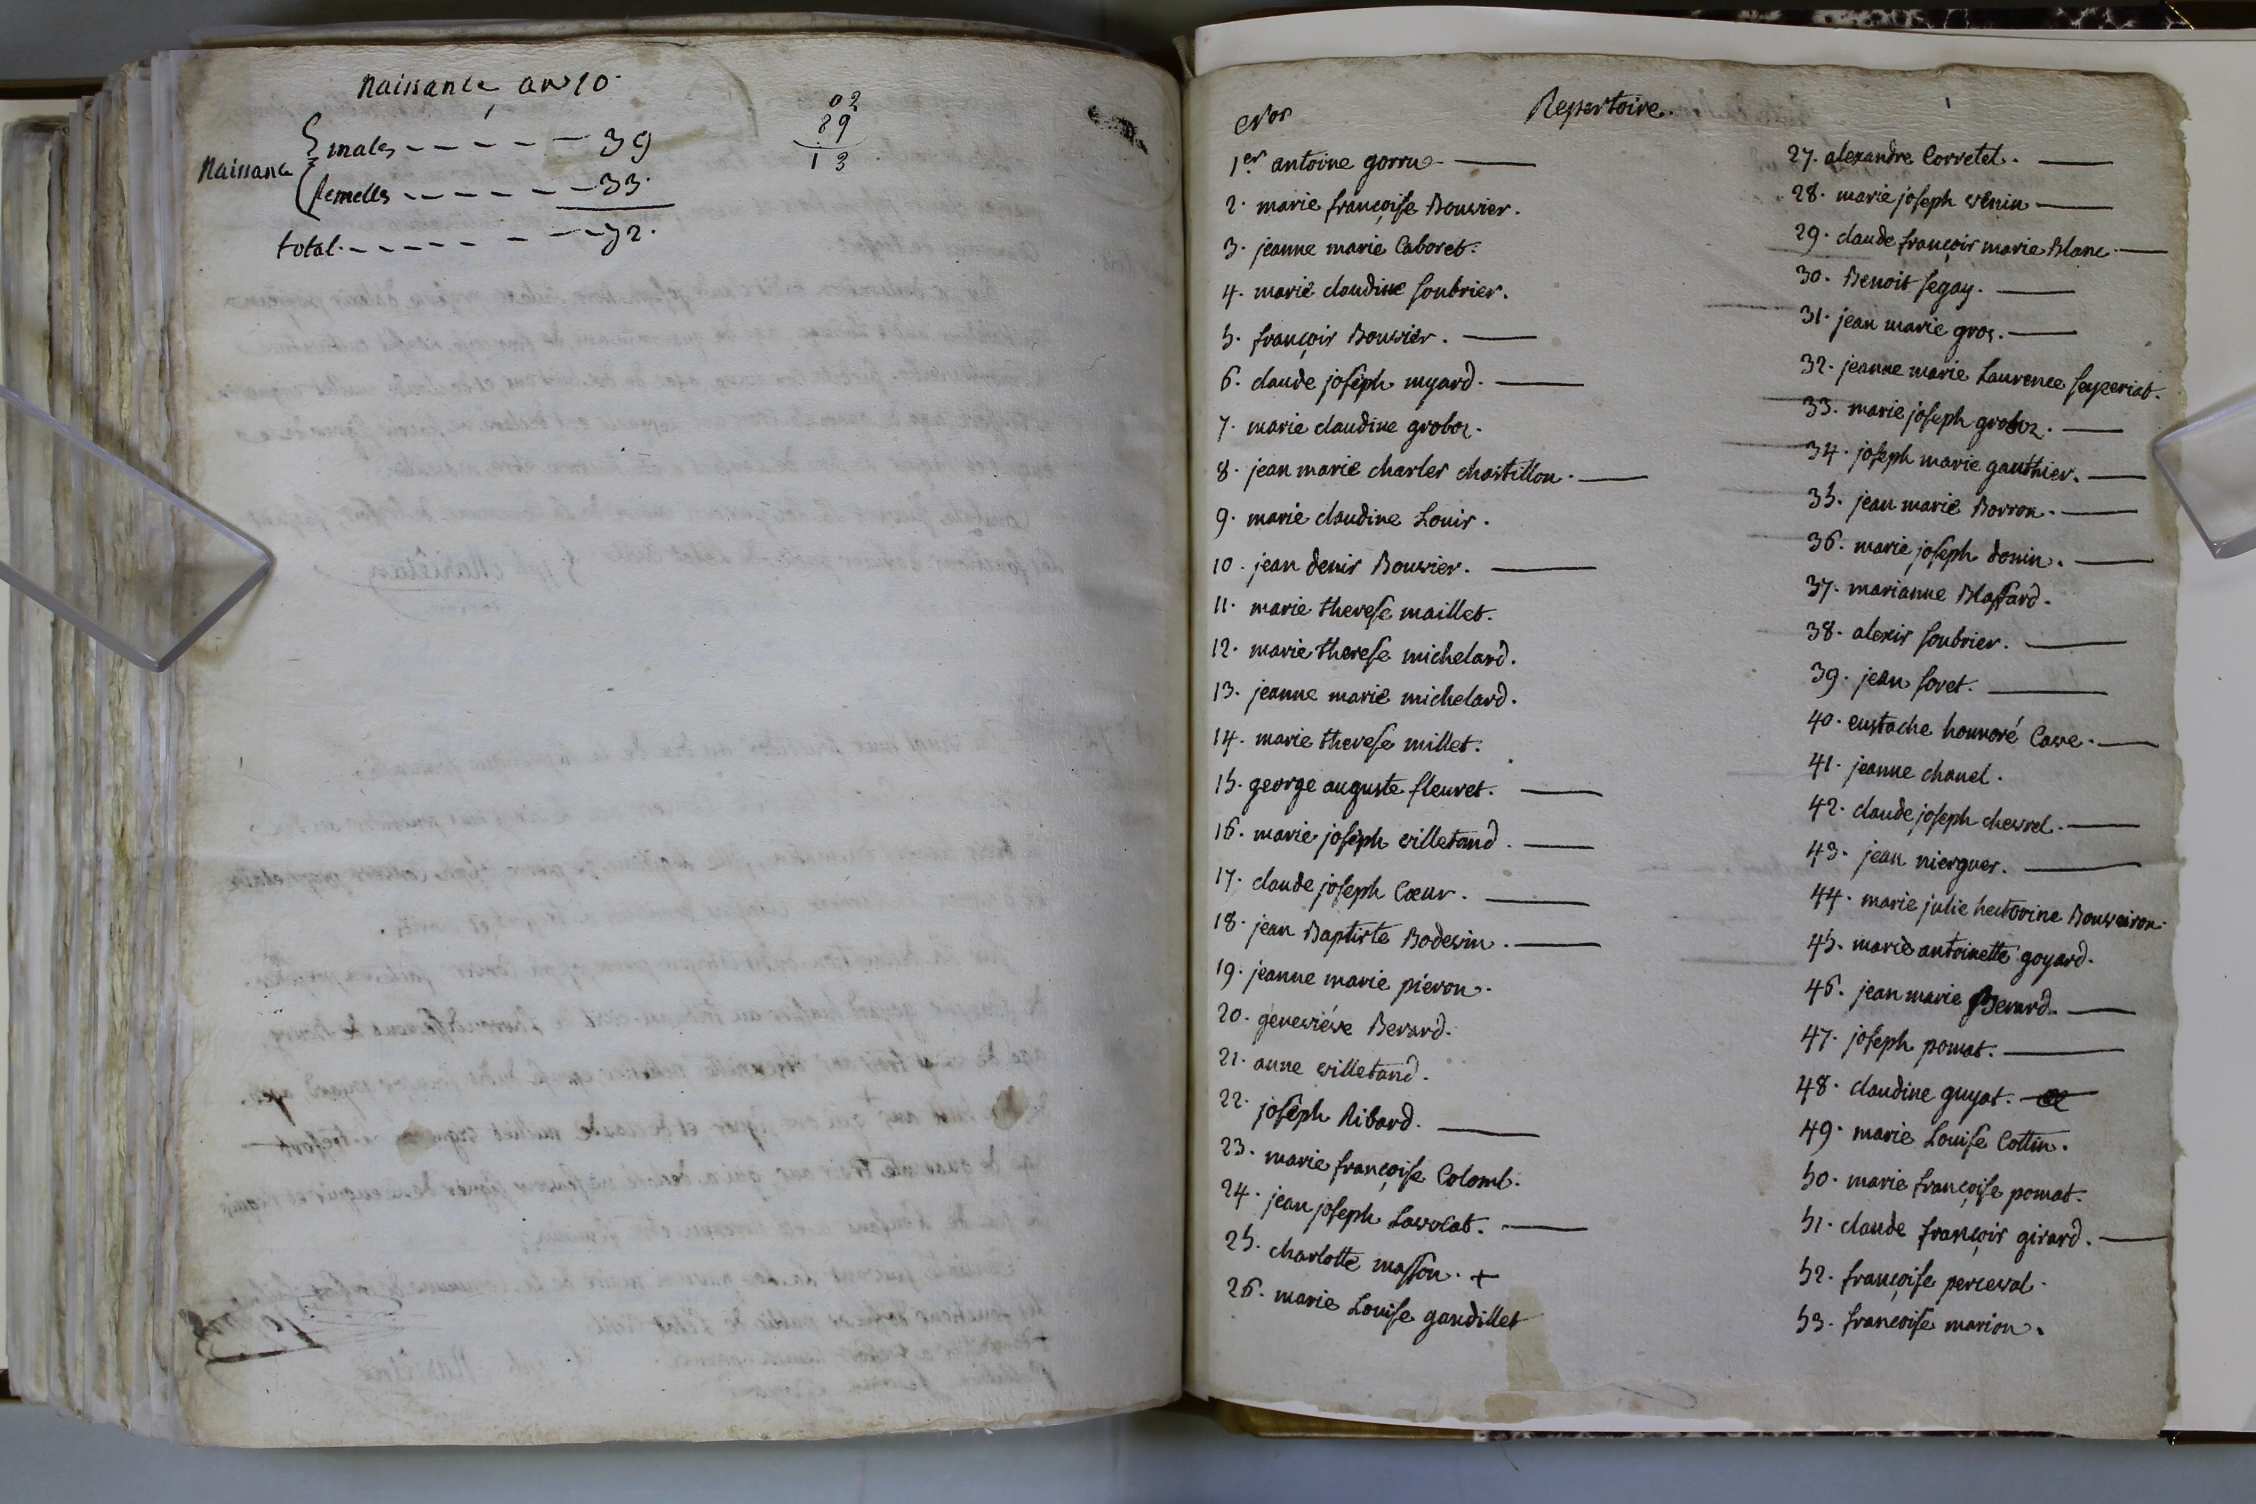 Naissance an 10
Naissance
males - - - - - - 39
femelles - - - - - - - 33.
total. - - - - - - - - 72.
02
89
13
Nos
Repertoire.
1er antoine gorru
2. marie françoise Bouvier.
3. jeanne marie Caboret.
4. marie claudine soubrier.
5. françois Bouvier.
6. claude joseph myard.
7. marie claudine groboz.
8. jean marie charles chastillon.
9. marie claudine Louis.
10. jean denis Bouvier.
11. marie therese maillet.
12. marie therese michelard.
13. jeanne marie michelard.
14. marie therese millet.
15. george auguste fleuret.
16. marie joseph villetand.
17. claude joseph Cœur.
18. jean Baptiste Bodevin.
19. jeanne marie pieron.
20. geneviéve Berard.
21. anne villetand.
22. joseph Ribard.
23. marie françoise Colomb.
24. jean joseph Lavocat.
25. charlotte masson. +
26. marie Louise gandillet
27. alexandre Corretel.
28. marie joseph venin
29. claude françois marie Blanc.
30. Benoit segay.
31. jean marie gros.
32. jeanne marie Laurence seyzeriat.
33. marie joseph groboz.
34. joseph marie gauthier.
35. jean marie Borron.
36. marie joseph donin.
37. marianne Blassard.
38. alexis soubrier.
39. jean soret.
40. eustache honnoré Cave.
41. jeanne chanel.
42. claude joseph chevrel.
43. jean niergues.
44. marie julie hectorine Bouveiron.
45. marie antoinette goyard.
46. jean marie Berard.
47. joseph pomat.
48. claudine guyat.
49. marie Louise Cottin.
50. marie françoise pomat.
51. claude françois girard.
52. françoise perceval.
53. françoise marion.